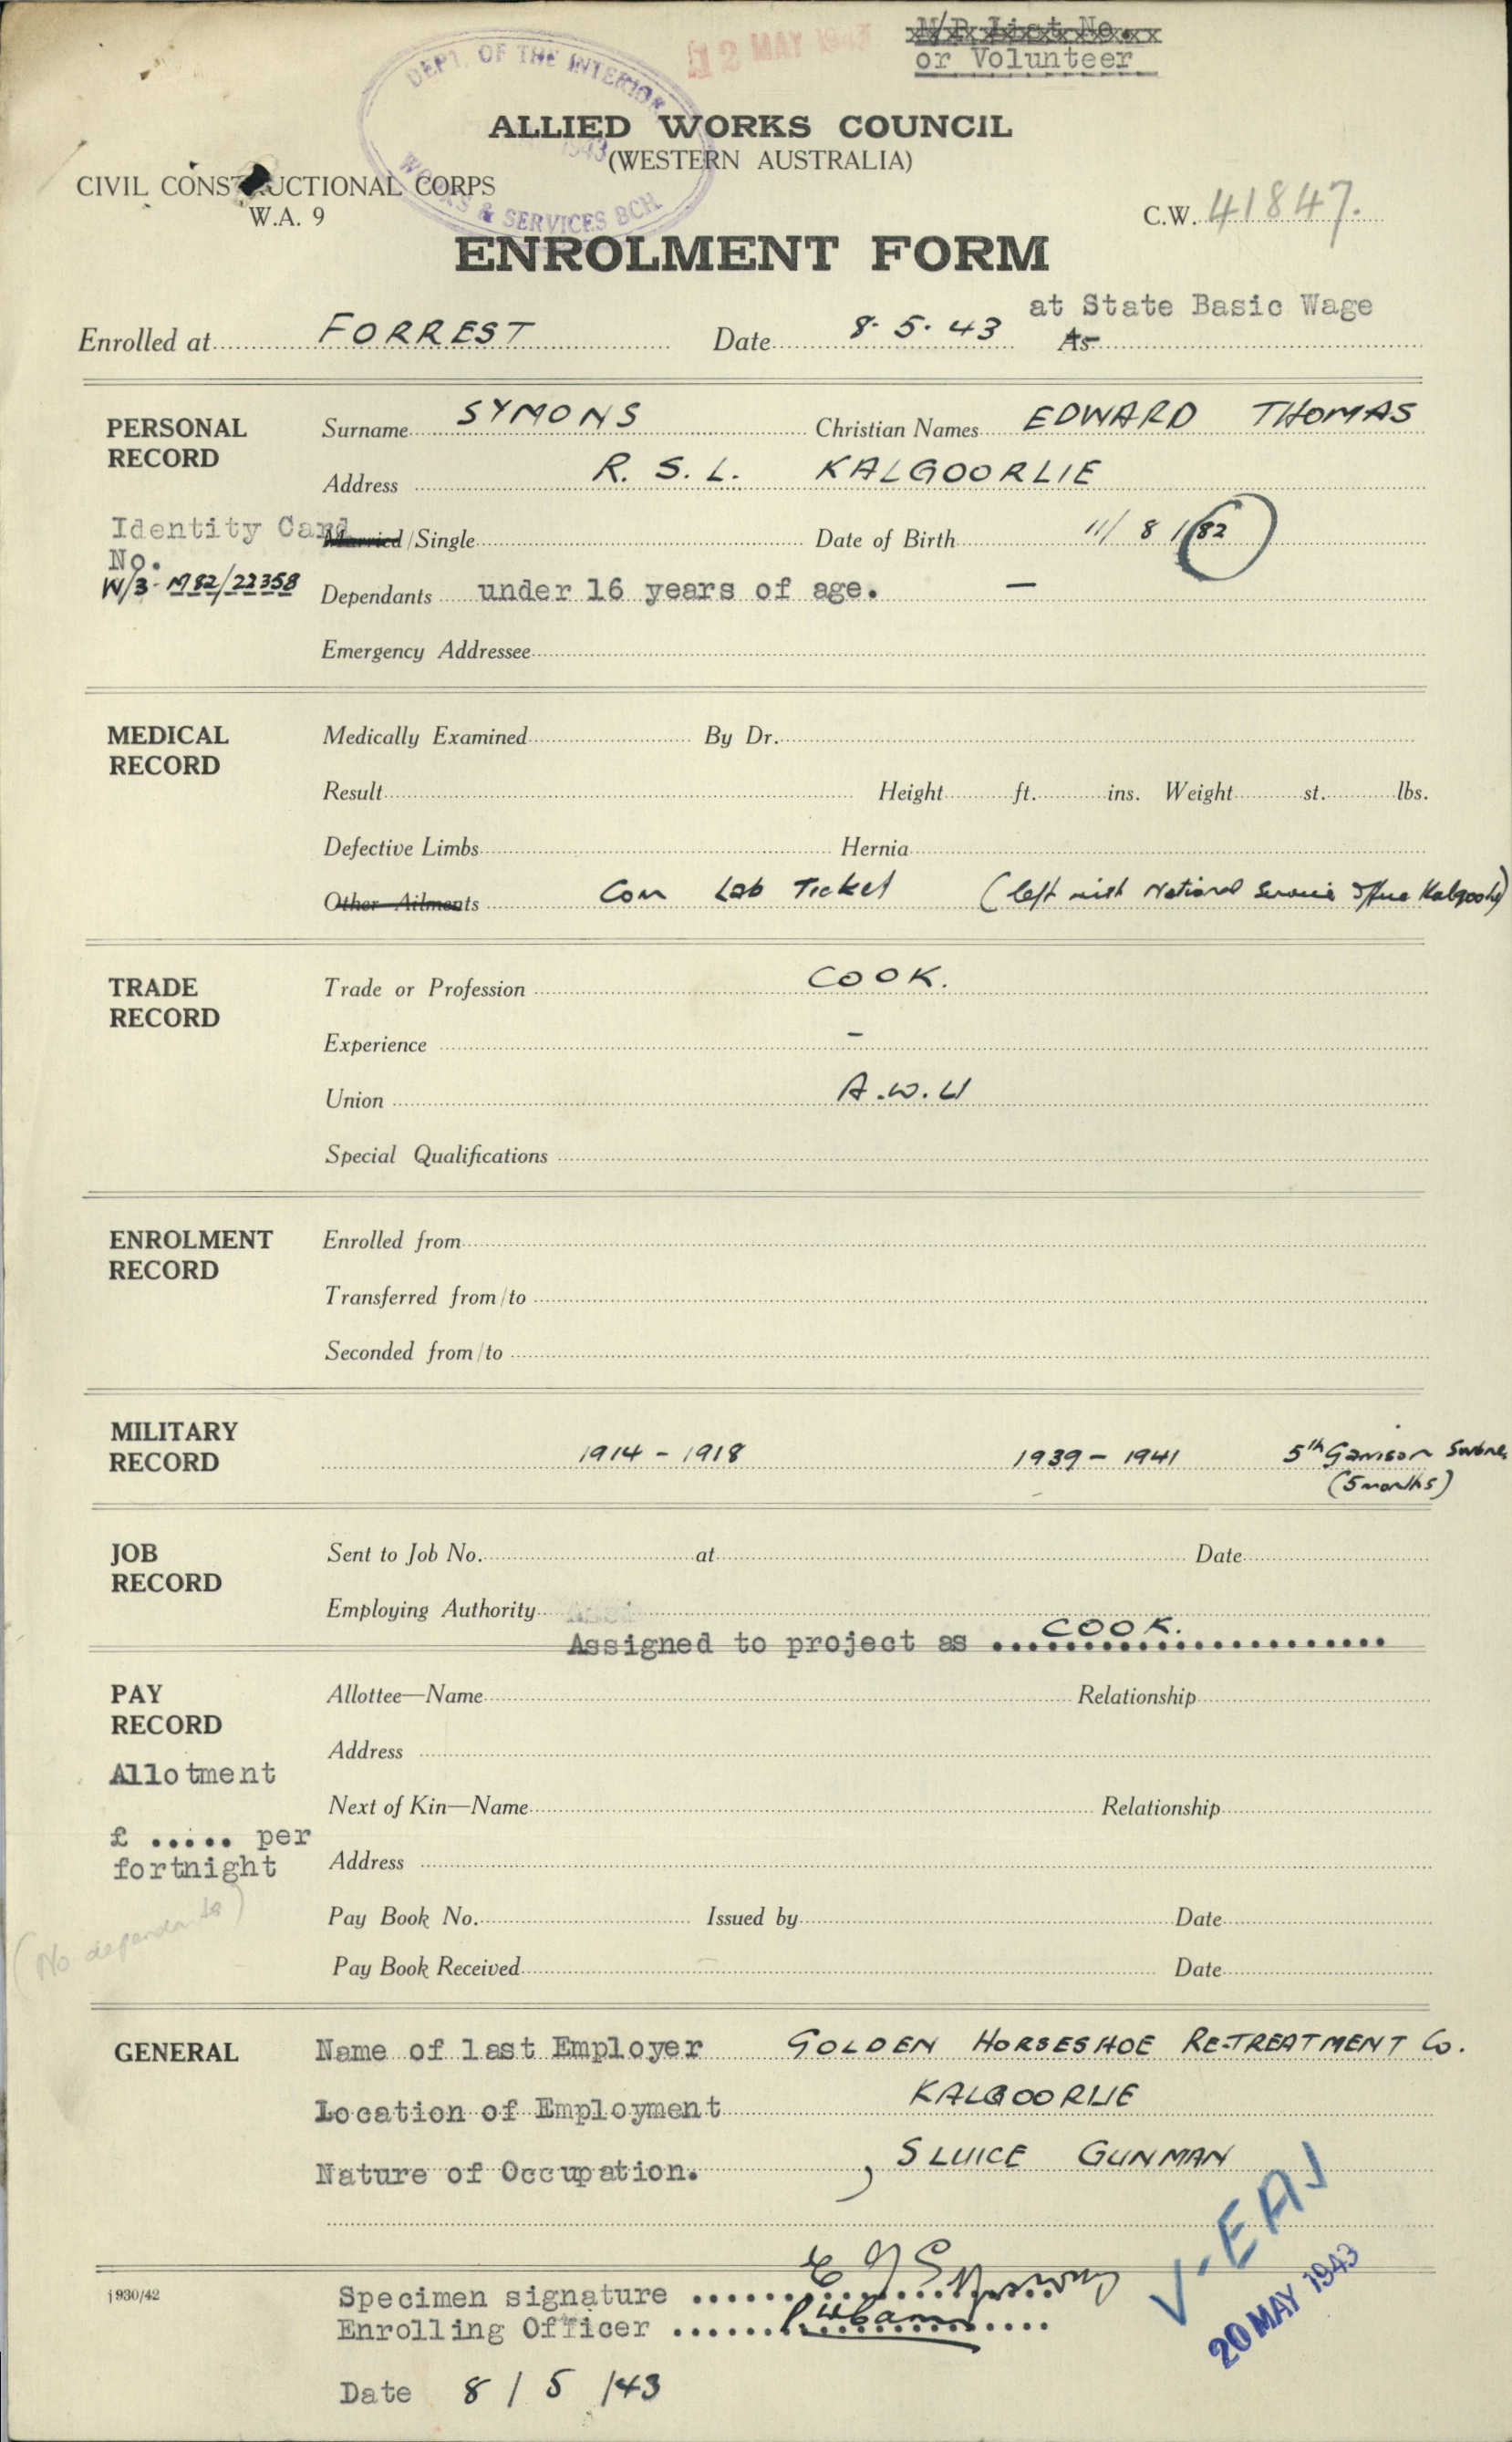 M/P List No.
or Volunteer
12 MAY 1943
DEPT. OF THE INTERIOR
1943
WORKS & SERVICES BCH.
ALLIED WORKS COUNCIL
(WESTERN AUSTRALIA)
CIVIL CONSTRUCTIONAL CORPS
W.A. 9
C.W. 41847.
ENROLMENT FORM
at State Basic Wage
Enrolled at FORREST Date 8.5.43 As
PERSONAL RECORD
Surname SYMONS Christian Names EDWARD THOMAS
Address R. S. L. KALGOORLIE
Identity Card
No.
W/3-1982/22358
Married/Single Date of Birth 11/8/82
Dependants under 16 years of age. —
Emergency Addressee
MEDICAL RECORD
Medically Examined By Dr.
Result Height ft. ins. Weight st. lbs.
Defective Limbs Hernia
Other Ailments Com Lab Ticket (left with National Service Office Kalgoorlie)
TRADE RECORD
Trade or Profession COOK.
Experience -
Union A.W.U
Special Qualifications
ENROLMENT RECORD
Enrolled from
Transferred from/to
Seconded from/to
MILITARY RECORD
1914 - 1918 1939 - 1941 5th Garrison
(5 months)
JOB RECORD
Sent to Job No. at Date
Employing Authority
Assigned to project as COOK.
PAY RECORD
Allottee—Name Relationship
Address
Allotment
Next of Kin—Name Relationship
£ ..... per
fortnight
Address
(No dependants)
Pay Book No. Issued by Date
Pay Book Received Date
GENERAL
Name of last Employer GOLDEN HORSESHOE RE-TREATMENT Co.
Location of Employment KALGOORLIE
Nature of Occupation. SLUICE GUNMAN
V-EAJ
20 MAY 1943
J930/42
Specimen signature E T Symons
Enrolling Officer
Date 8/5/43